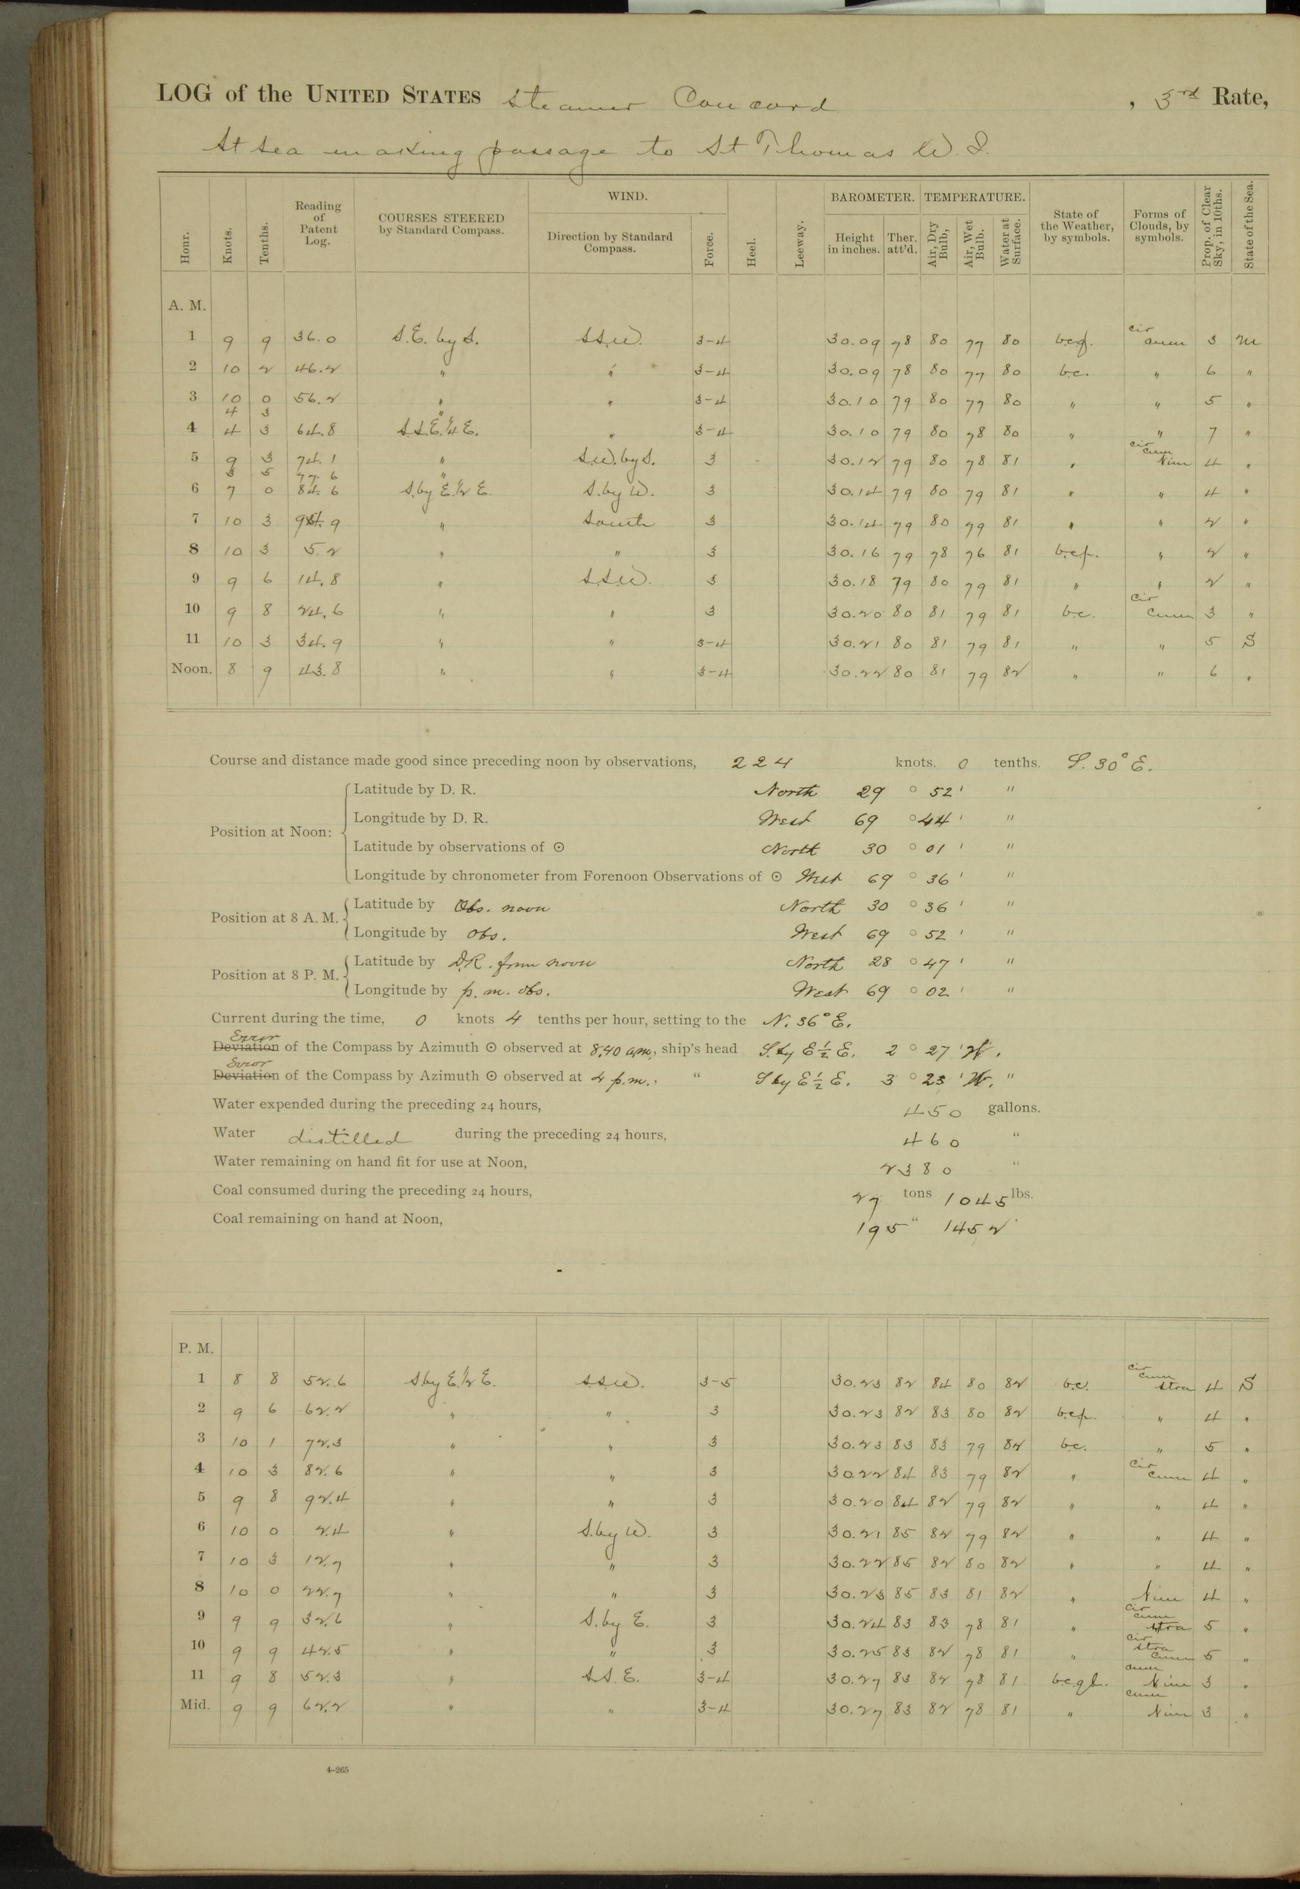 LOG of the UNITED STATES Steamer Concord , 3rd Rate,
At Sea making passage to St Thomas W. I.
WIND. BAROMETER. TEMPERATURE.
Hour. Knots. Tenths. Reading of Patent Log. COURSES STEERED by Standard Compass. Direction by Standard Compass. Force. Heel. Leeway. Height in inches. Ther. att'd. Air, Dry Bulb, Air, Wet Bulb. Water at Surface. State of the Weather, by symbols. Forms of Clouds, by symbols. Prop. of Clear Sky, in 10ths. State of the Sea.
A. M.
1 9 9 36.0 S.E. by S. SSW. 3-4 30.09 78 80 77 80 b.c.q. cir cum 3 M
2 10 2 46.2 " " 3-4 30.09 78 80 77 80 b.c. " 6 "
3 10 0 56.2 " " 3-4 30.10 79 80 77 80 " " 5 "
4 3 "
4 4 3 64.8 S S.E. 1/4 E. " 3-4 30.10 79 80 78 80 " " 7 "
5 9 3 74.1 " S.W. by S. 3 30.12 79 80 78 81 " cir cum Nim 4 "
3 5 77.6 "
6 7 0 84.6 S. by E. 1/2 E. S. by W. 3 30.14 79 80 79 81 " " 4 "
7 10 3 94.9 " South 3 30.14 79 80 79 81 " " 2 "
8 10 3 5.2 " " 3 30.16 79 78 76 81 b.c.p. " 2 "
9 9 6 14.8 " S.S.W. 3 30.18 79 80 79 81 " " 2 "
10 9 8 24.6 " " 3 30.20 80 81 79 81 b.c. cir cum 3 "
11 10 3 34.9 " " 3-4 30.21 80 81 79 81 " " 5 S
Noon. 8 9 43.8 " " 3-4 30.22 80 81 79 82 " " 6 "
Course and distance made good since preceding noon by observations, 224 knots. 0 tenths. S. 30° E.
Position at Noon:
Latitude by D. R. North 29 ° 52 ' "
Longitude by D. R. West 69 ° 44 ' "
Latitude by observations of ☉ North 30 ° 01 ' "
Longitude by chronometer from Forenoon Observations of ☉ West 69 ° 36 ' "
Position at 8 A. M. Latitude by Obs. noon North 30 ° 36 ' "
Longitude by Obs. West 69 ° 52 ' "
Position at 8 P. M. Latitude by D.R. from noon North 28 ° 47 ' "
Longitude by p. m. obs. West 69 ° 02 ' "
Current during the time, 0 knots 4 tenths per hour, setting to the N. 36° E.
Error
Deviation of the Compass by Azimuth ☉ observed at 8.40 a.m., ship's head S. by E 1/2 E. 2 ° 27 ' W.
Error
Deviation of the Compass by Azimuth ☉ observed at 4 p.m., " S by E 1/2 E. 3 ° 23 ' W. "
Water expended during the preceding 24 hours, 450 gallons.
Water distilled during the preceding 24 hours, 460 "
Water remaining on hand fit for use at Noon, 2380 "
Coal consumed during the preceding 24 hours, 27 tons 1045 lbs.
Coal remaining on hand at Noon, 195 " 1452 "
P. M.
1 8 8 52.6 S by E. 1/2 E. SSW. 3-5 30.23 82 84 80 82 b.c. cir cum stra 4 S
2 9 6 62.2 " " 3 30.23 82 83 80 82 b.c.p. " 4 "
3 10 1 72.3 " " 3 30.23 83 83 79 82 b.c. " 5 "
4 10 3 82.6 " " 3 30.22 84 83 79 82 " cir cum 4 "
5 9 8 92.4 " " 3 30.20 84 82 79 82 " " 4 "
6 10 0 2.4 " S. by W. 3 30.21 85 82 79 82 " " 4 "
7 10 3 12.7 " " 3 30.22 85 82 80 82 " " 4 "
8 10 0 22.7 " " 3 30.23 85 83 81 82 " Nim 4 "
9 9 9 32.6 " S. by E. 3 30.24 83 83 78 81 " cir cum stra 5 "
10 9 9 42.5 " " 3 30.25 83 82 78 81 " cir stra cum 5 "
11 9 8 52.3 " S.S.E. 3-4 30.27 83 82 78 81 b.c.q.l. cum Nim 3 "
Mid. 9 9 62.2 " " 3-4 30.27 83 82 78 81 " cum Nim 3 "
4-265